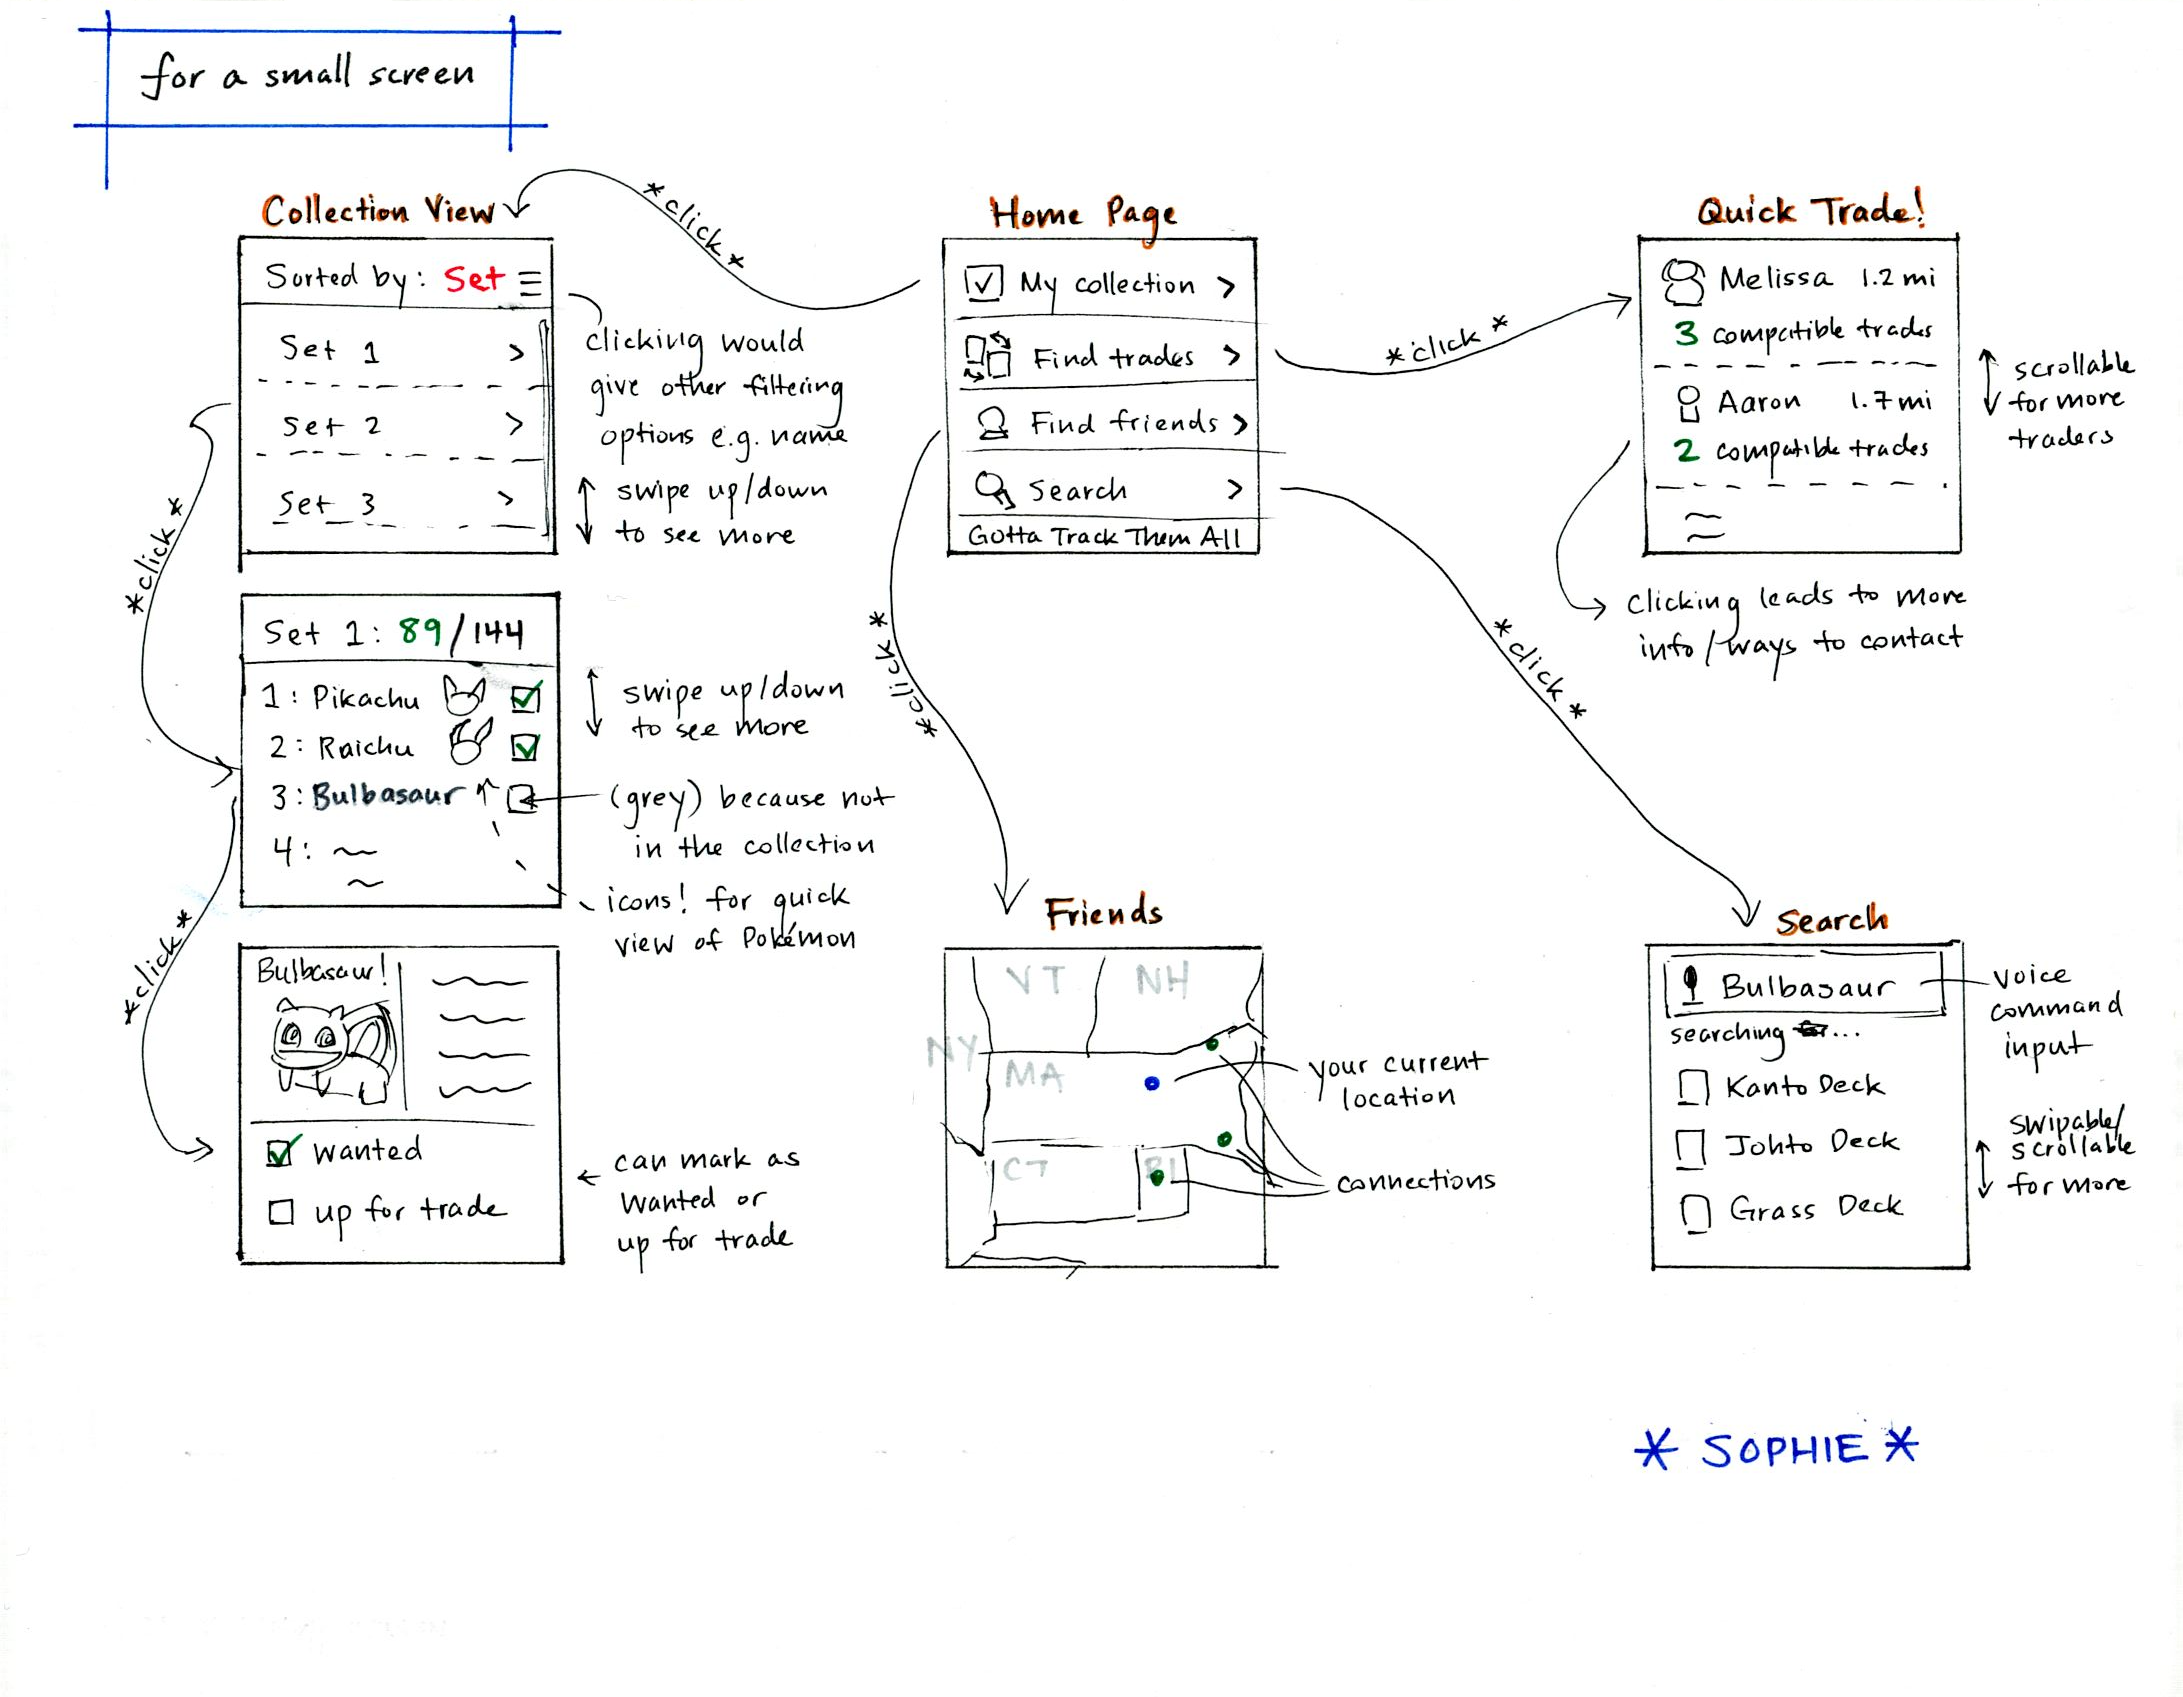 for a small screen
Collection View
Sorted by: Set
Set 1 >
Set 2 >
Set 3 >
*click*
clicking would
give other filtering
options e.g. name
swipe up/down
to see more
*click*
Set 1: 89/144
1: Pikachu
2: Raichu
3: Bulbasaur
4:
swipe up/down
to see more
(grey) because not
in the collection
icons! for quick
view of Pokémon
*click*
Bulbasaur!
wanted
up for trade
can mark as
wanted or
up for trade
Home Page
My collection >
Find trades >
Find friends >
Search >
Gotta Track Them All
*click*
*click*
*click*
Quick Trade!
Melissa 1.2 mi
3 compatible trades
Aaron 1.7 mi
2 compatible trades
scrollable
for more
traders
clicking leads to more
info/ways to contact
Friends
VT NH
NY
MA
CT RI
your current
location
connections
Search
Bulbasaur
searching for...
Kanto Deck
Johto Deck
Grass Deck
voice
command
input
swipable/
scrollable
for more
* SOPHIE *